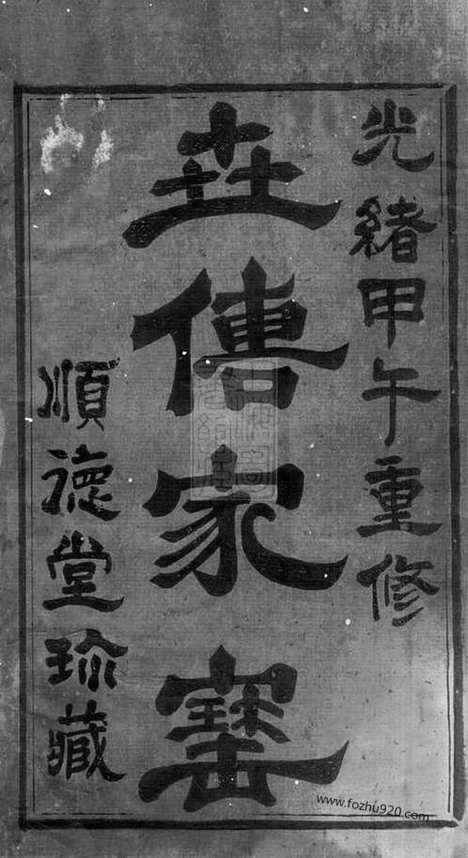 光緒甲午重修
世傳家寶
順德堂珍藏
www.fozhu920.com